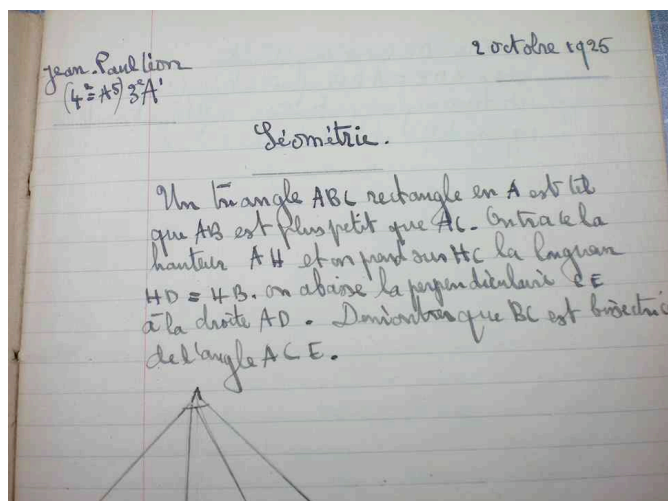 2 octobre 1925
Jean-Paul Léon
(4e A5) 3e A1
Géométrie.
Un triangle ABC rectangle en A est tel
que AB est plus petit que AC. On trace la
hauteur AH et on prend sur HC la longueur
HD = HB. on abaisse la perpendiculaire CE
à la droite AD. Démontrer que BC est bissectric
de l'angle ACE.
A